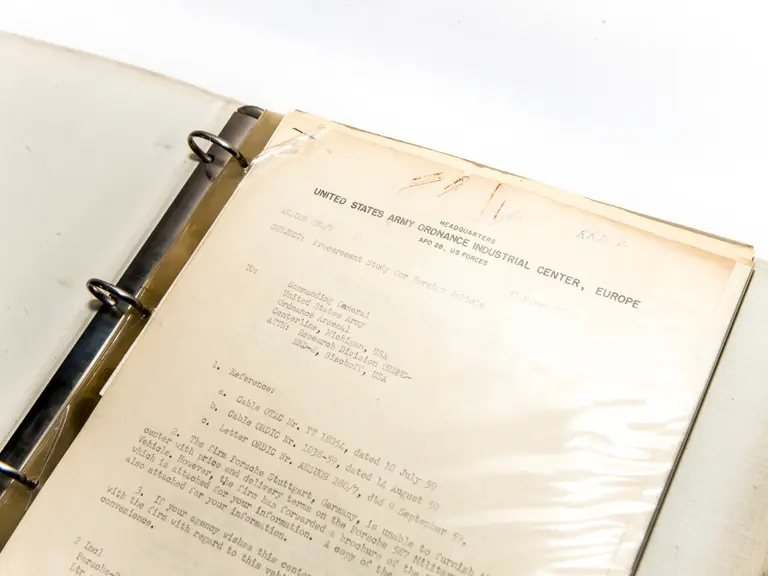 HEADQUARTERS
UNITED STATES ARMY ORDNANCE INDUSTRIAL CENTER, EUROPE
APO 28, US FORCES
SUBJECT: Procurement Study for Foreign Vehicle
TO:
Commanding General
United States Army
Ordnance Arsenal
Centerline, Michigan, USA
ATTN: Research Division
Bischoff, USA
1. Reference:
a. Cable OTAC Nr. TT 18054, dated 10 July 59
b. Cable ORDIC Nr. 1038-59, dated 14 August 59
c. Letter ORDIC Nr. AEUUOB 280/7, dtd 9 September 59.
2. The firm Porsche Stuttgart, Germany, is unable to furnish
center with price and delivery terms on the Porsche 597 Military
Vehicle. However, the firm has forwarded a brochure of the
which is attached for your information. A copy of the
also attached for your information.
3. If your agency wishes this center
with the firm with regard to this
convenience.
2 Incl
Porsche
Ltr